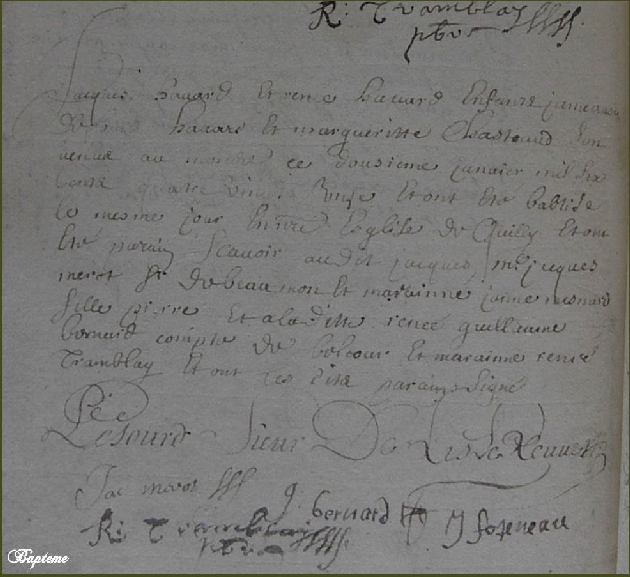 R: Tramblay
ptre
Jacques havard Et renee havard Enfants jumeaux
de havard Et margueritte Chasteaud Son
venue au monde ce dousieme janvier mil six
cents quatre vingt Unze Et ont Ete baptise
le mesme jour En nre Eglise de Quilly Et ont
Ete parain Scavoir audit jacques mr jacques
merot Sr de beaumon Et marainne janne mesnard
fille pierre Et a laditte renee guillaume
bernard compte de bolcour Et marainne renee
Tramblay Et ont les dits parains Signé
Lesourd Sieur De
Jac merot g. bernard J foseneau
R: Tramblay
ptre
Bapteme